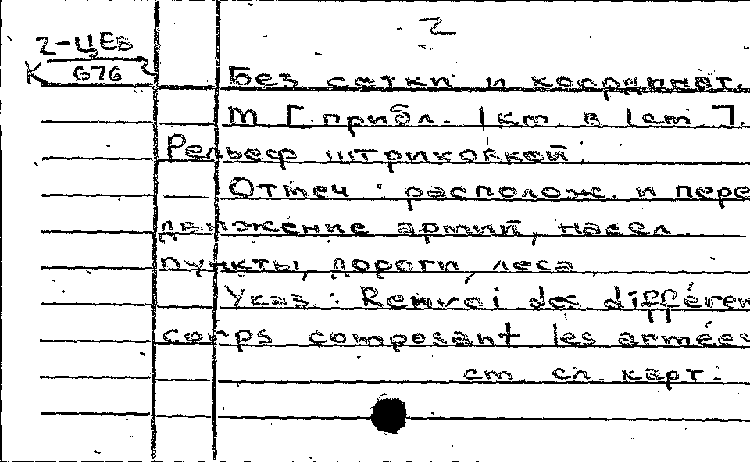 2
2-ЦЕВ
К 676 2
Без сетки и координат.
М [прибл. 1км в 1см].
Рельеф штриховкой.
Отмеч.: располож. и пере
движение армий, насел.
пункты, дороги, леса.
Указ.: Renvoi des différen
corps composant les armées
см. сл. карт.